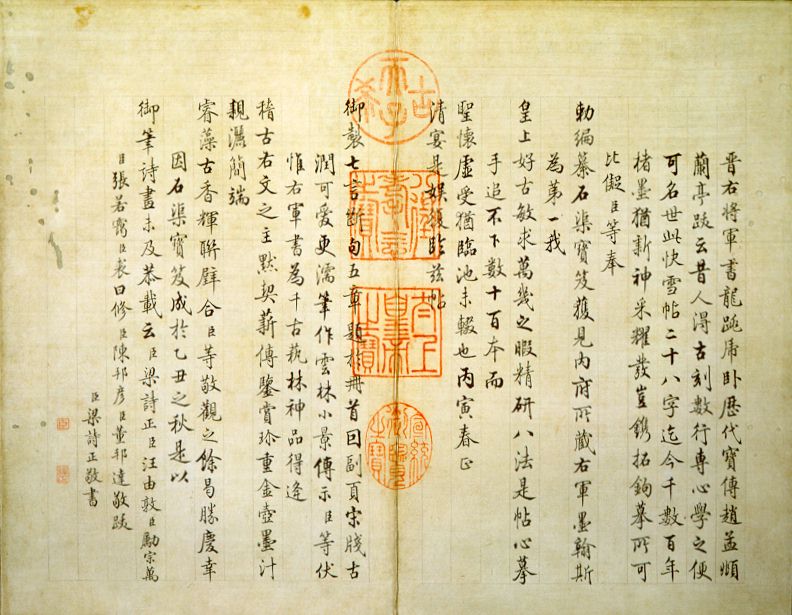 晉右將軍書龍跳虎卧歷代寶傳趙孟頫
蘭亭跋云昔人得古刻數行專心學之便
可名世此快雪帖二十八字迄今千數百年
楮墨猶新神采耀發豈鐫拓鉤摹所可
比儗臣等奉
勅編纂石渠寶笈獲見內府所藏右軍墨翰斯
為第一我
皇上好古敏求萬幾之暇精研八法是帖心摹
手追不下數十百本而
聖懷虛受猶臨池未輟也丙寅春正
清宴是娛復臨茲帖
古希天子
八徵耄念之寶
太上皇帝之寶
宣統御覽之寶
御製七言斷句五章題於冊首回副頁宋牋古
潤可愛更濡筆作雲林小景傳示臣等伏
惟右軍書為千古藝林神品得逢
稽古右文之主默契薪傳鑒賞珍重金壺墨汁
親灑簡端
睿藻古香輝聯璧合臣等敬觀之餘曷勝慶幸
因石渠寶笈成於乙丑之秋是以
御筆詩畫未及恭載云臣梁詩正臣汪由敦臣勵宗萬
臣張若靄臣裘曰修臣陳邦彥臣董邦達敬跋
臣梁詩正敬書